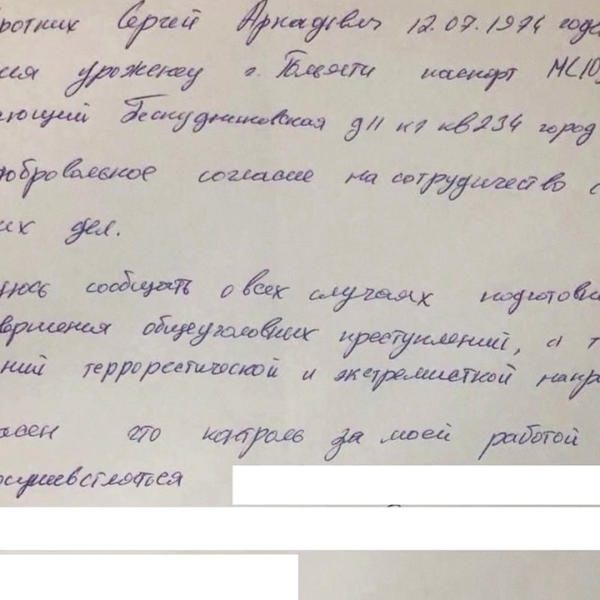 ротких Сергей Аркадьевич 12.07.1974 года
ния уроженец г. Тольятти паспорт МС10
ающий Бескудниковская д11 к1 кв234 город
добровольное согласие на сотрудничество с
их дел.
уюсь сообщать о всех случаях подготовки
вершения общеуголовных преступлений, а т
ний террорестической и экстремисткой напр
ласен что контроль за моей работой
осущевстляться